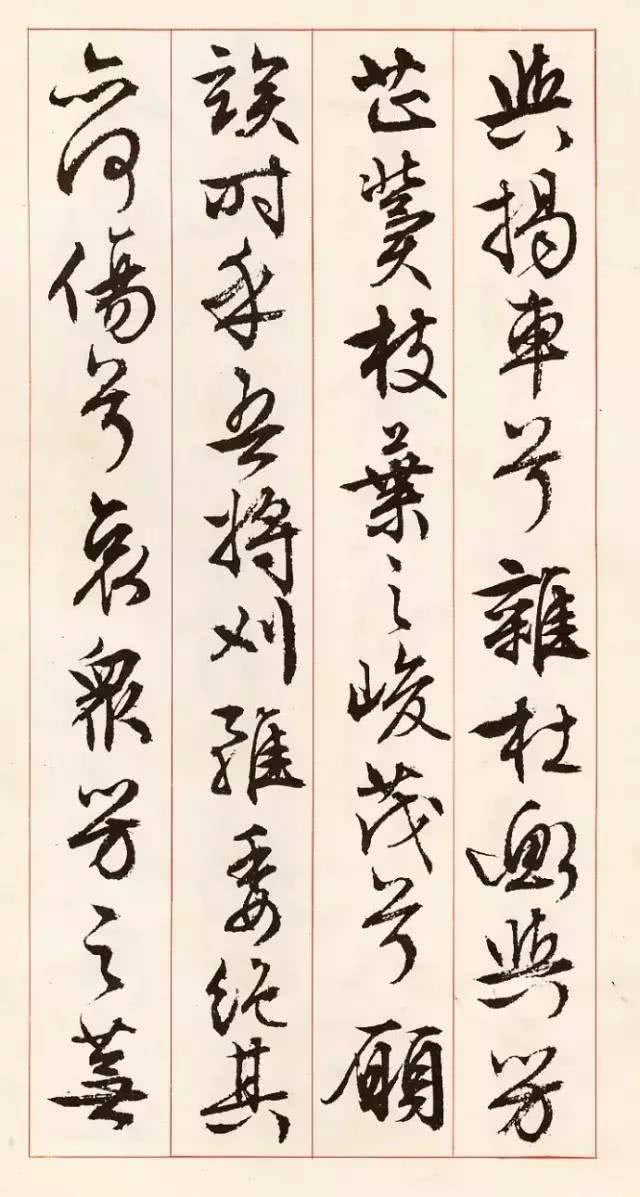 與揭車兮雜杜衡與芳
芷冀枝葉之峻茂兮願
竢時乎吾將刈雖委絕其
亦何傷兮哀眾芳之蕪